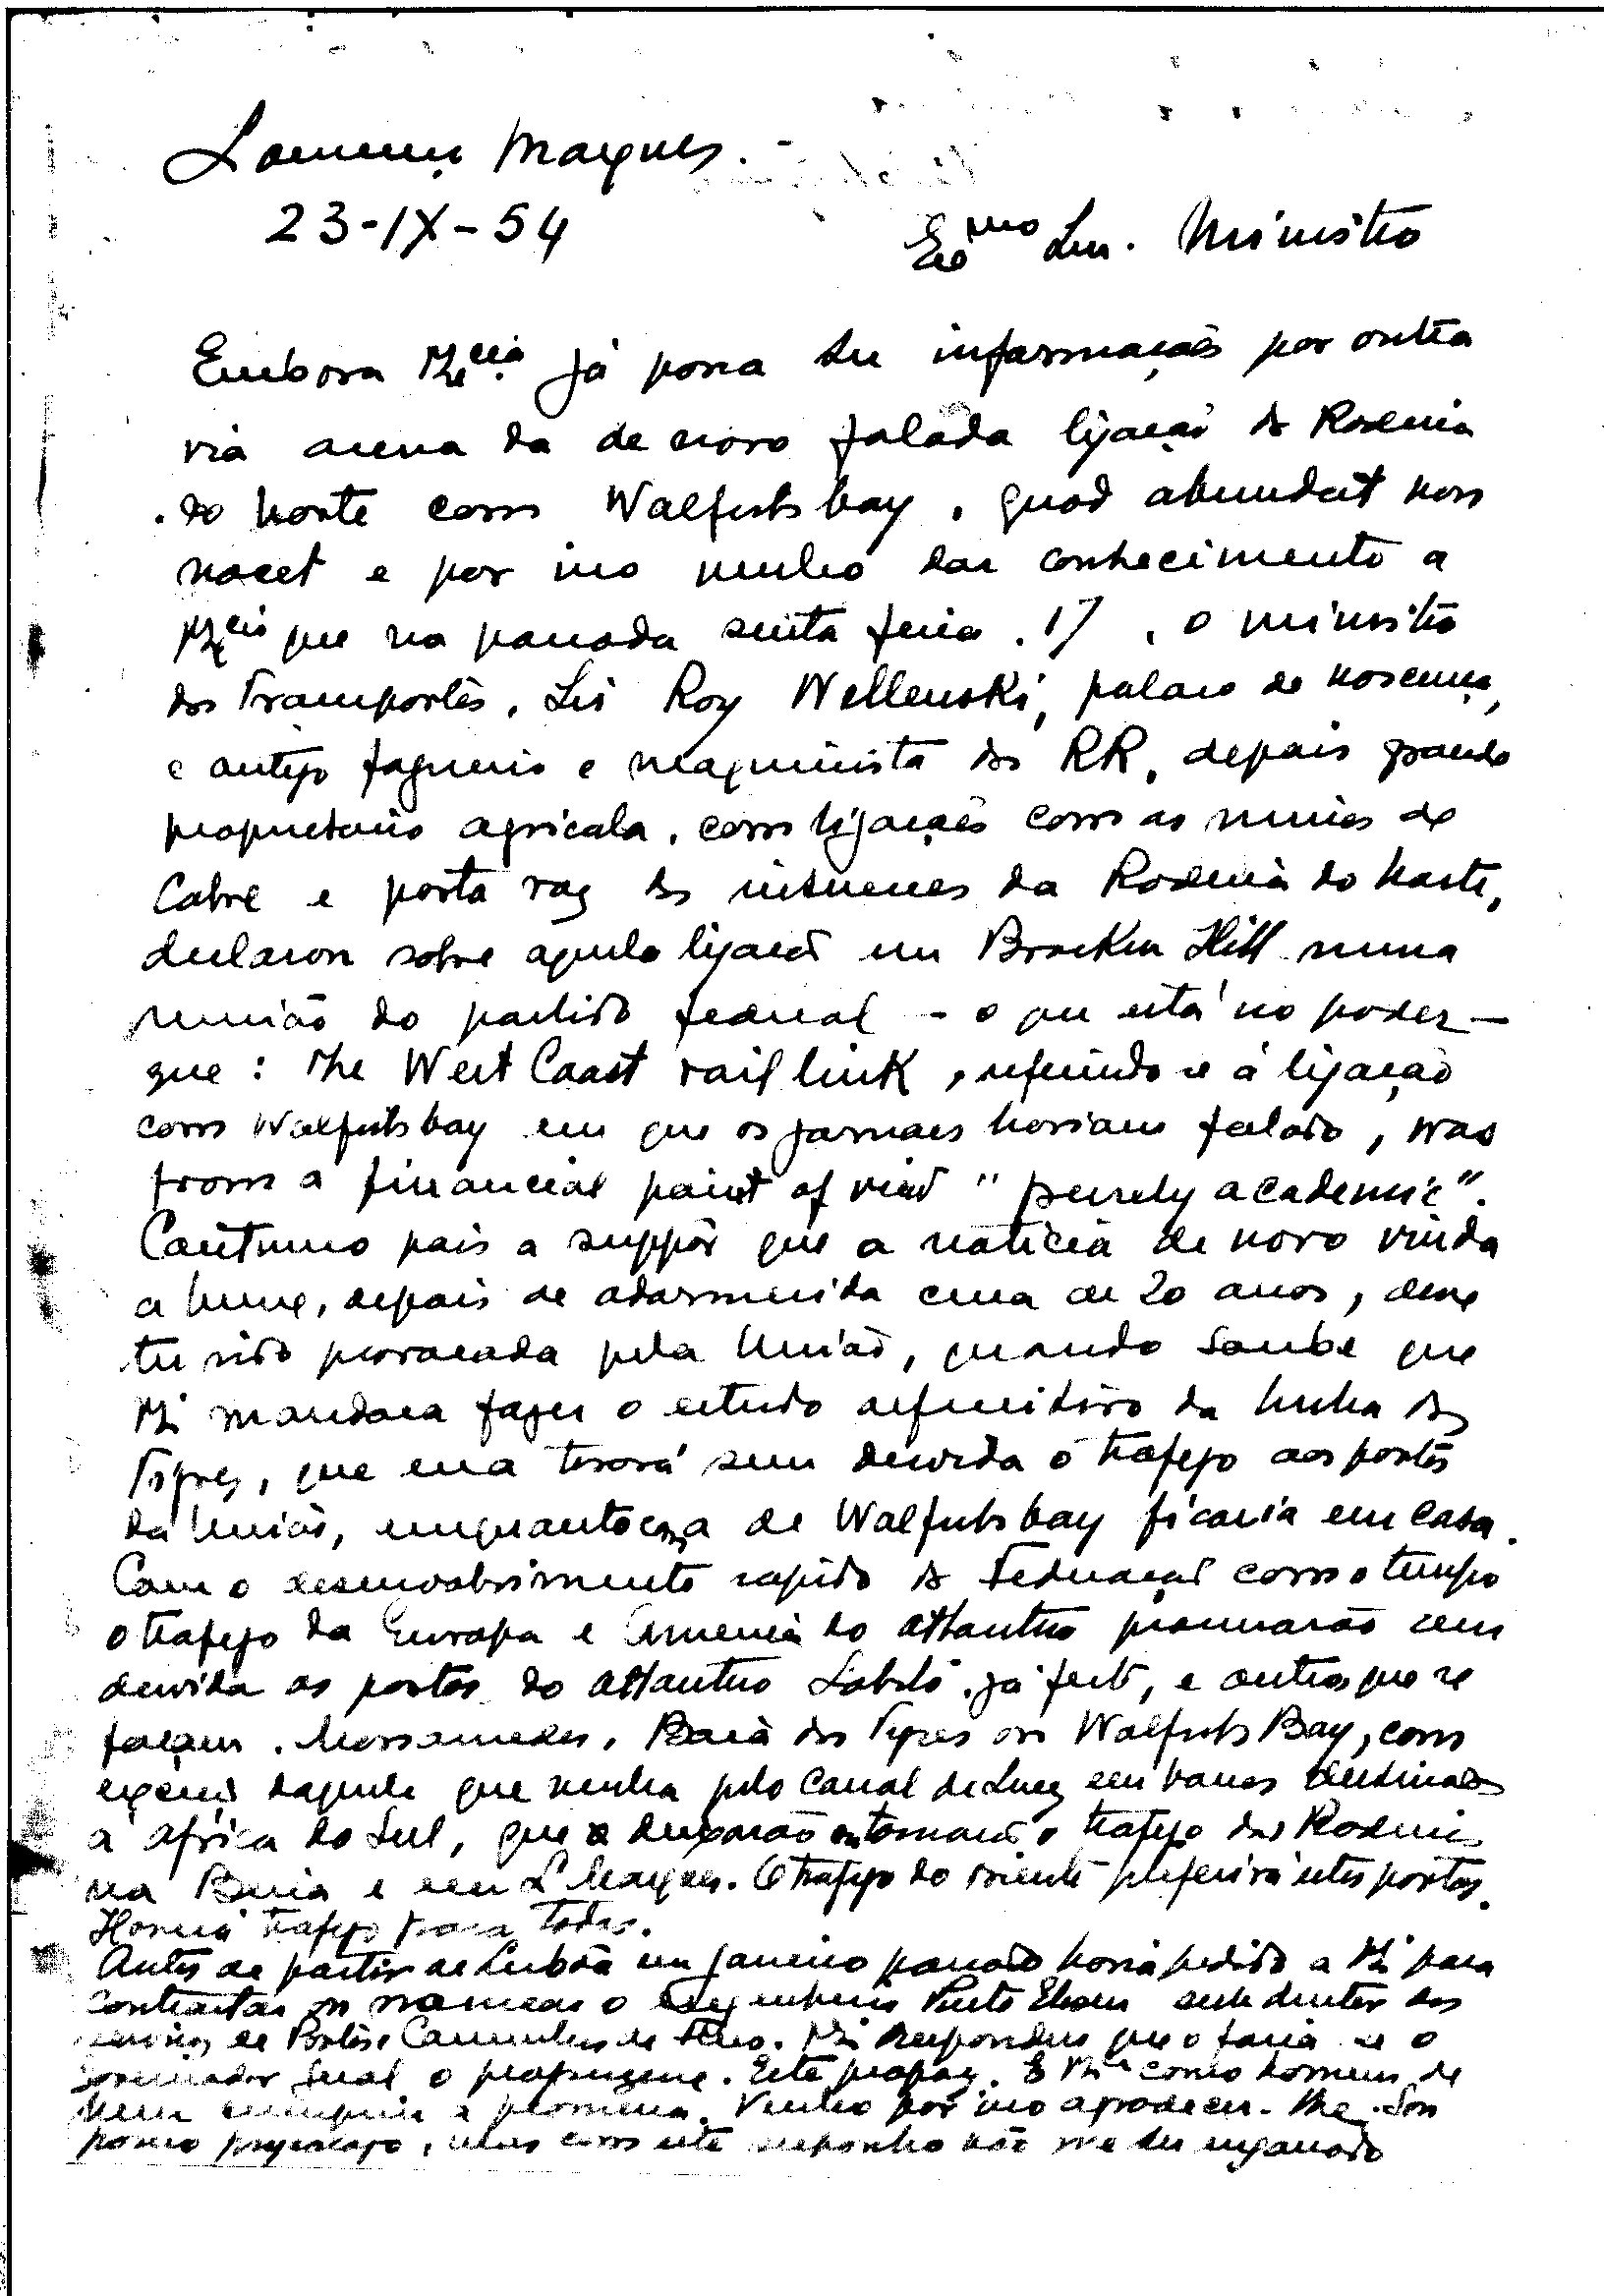 Lourenço Marques.
23-IX-54
Exmo Snr. Ministro
Embora V. Excia já possa ter informações por outra
via acerca da de novo falada ligação da Rodesia
do Norte com Walfishbay, quod abundat non
nocet e por isso venho dar conhecimento a
V. Excia que na passada sexta feira, 17, o ministro
dos Transportes, Sir Roy Wellenski, polaco de nascença,
e antigo fogueiro e maquinista dos RR, depois grande
proprietario agricola, com ligações com as minas de
Cobre e porta voz dos interesses da Rodesia do Norte,
declarou sobre aquela ligação em Brocken Hill numa
reunião do partido federal - o que está no poder -
que: the West Coast rail link, referindo-se á ligação
com Walfishbay em que os jornaes haviam falado, was
from a financial point of view "purely academic".
Continuo pois a suppôr que a noticia de novo vinda
a lume, depois de adormecida cerca de 20 anos, deve
ter sido provocada pela União, quando soube que
V. mandara fazer o estudo definitivo da linha dos
Tigres, que essa tirará sem duvida o trafego aos portos
da União, emquanto a de Walfishbay ficaria em casa.
Com o desenvolvimento rapido da Federação com o tempo
o trafego da Europa e America do Atlantico procurarão sem
duvida os portos do Atlantico Lobito, já feito, e outros que se
façam, Mossamedes, Baia dos Tigres ou Walfish Bay, com
exceção daquele que venha pelo Canal de Suez em vapores destinados
á Africa do Sul, que deixarão ou tomarão o trafego das Rodesias
na Beira e em L. Marques. O trafego do oriente preferirá estes portos.
Haverá trafego para todos.
Antes de partir de Lisboa em Janeiro passado havia pedido a V. para
contractar ou nomear o engenheiro Pinto director dos
serviços de Portos e Caminhos de Ferro. V. respondeu que o faria se o
Governador Geral o propuzesse. Este propoz. E V. como homem de
bem cumpriu a promessa. Venho por isso agradecer-lhe. Sou
pouco mas com este supponho não me ter enganado